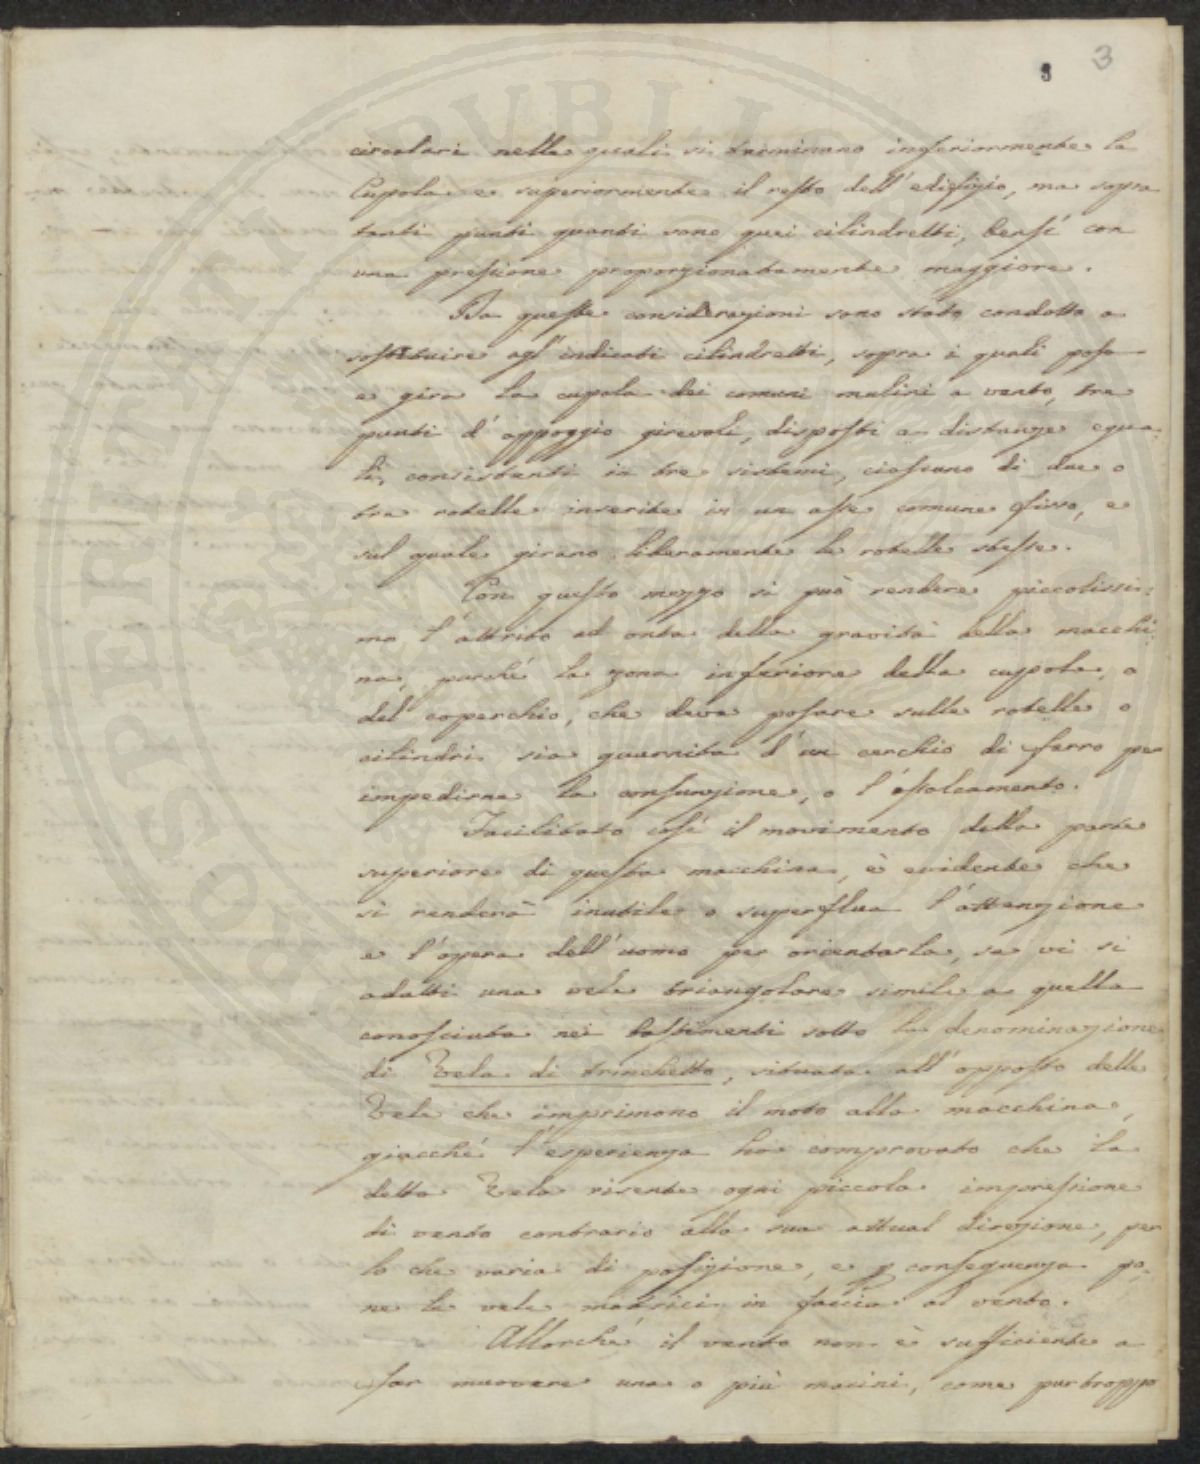 3
3
circolari nelle quali si terminano inferiormente la
Cupola e superiormente il resto dell'edifizio, ma sopra
tanti punti quanti sono quei cilindretti, bensì con
una pressione proporzionatamente maggiore.
Da queste considerazioni sono stato condotto a
sostituire agl'indicati cilindretti, sopra i quali posa
e gira la cupola dei comuni mulini a vento, tre
punti d'appoggio girevoli, disposti a distanze egua-
li, consistenti in tre sistemi, ciascuno di due o
tre rotelle inserite in un asse comune fisso, e
sul quale girano liberamente le rotelle stesse.
Con questo mezzo si può rendere piccolissi-
mo l'attrito ad onta della gravità della macchi-
na, purché la zona inferiore della cupola, o
del coperchio, che deve posare sulle rotelle o
cilindri sia guernita d'un cerchio di ferro per
impedirne la consunzione, o l'affalcamento.
Facilitato così il movimento della parte
superiore di questa macchina, è evidente che
si renderà inutile o superflua l'attenzione
e l'opera dell'uomo per orientarla, se vi si
adatti una vela triangolare simile a quella
conosciuta nei bastimenti sotto la denominazione
di Vela di trinchetto, situata all'opposto delle
Vele che imprimono il moto alla macchina,
giacché l'esperienza ha comprovato che la
detta Vela risente ogni piccola impressione
di vento contrario alla sua attual direzione, per
lo che varia di posizione, e p conseguenza po-
ne le vele motrici in faccia al vento.
Allorché il vento non è sufficiente a
far muovere una o più macini, come purtroppo
PROSPERITATI PUBLICAE